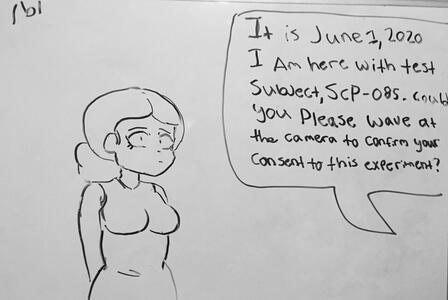 It is June 1, 2020
I Am here with test
Subject, SCP-085. Could
you Please wave at
the camera to confirm your
Consent to this experiment?